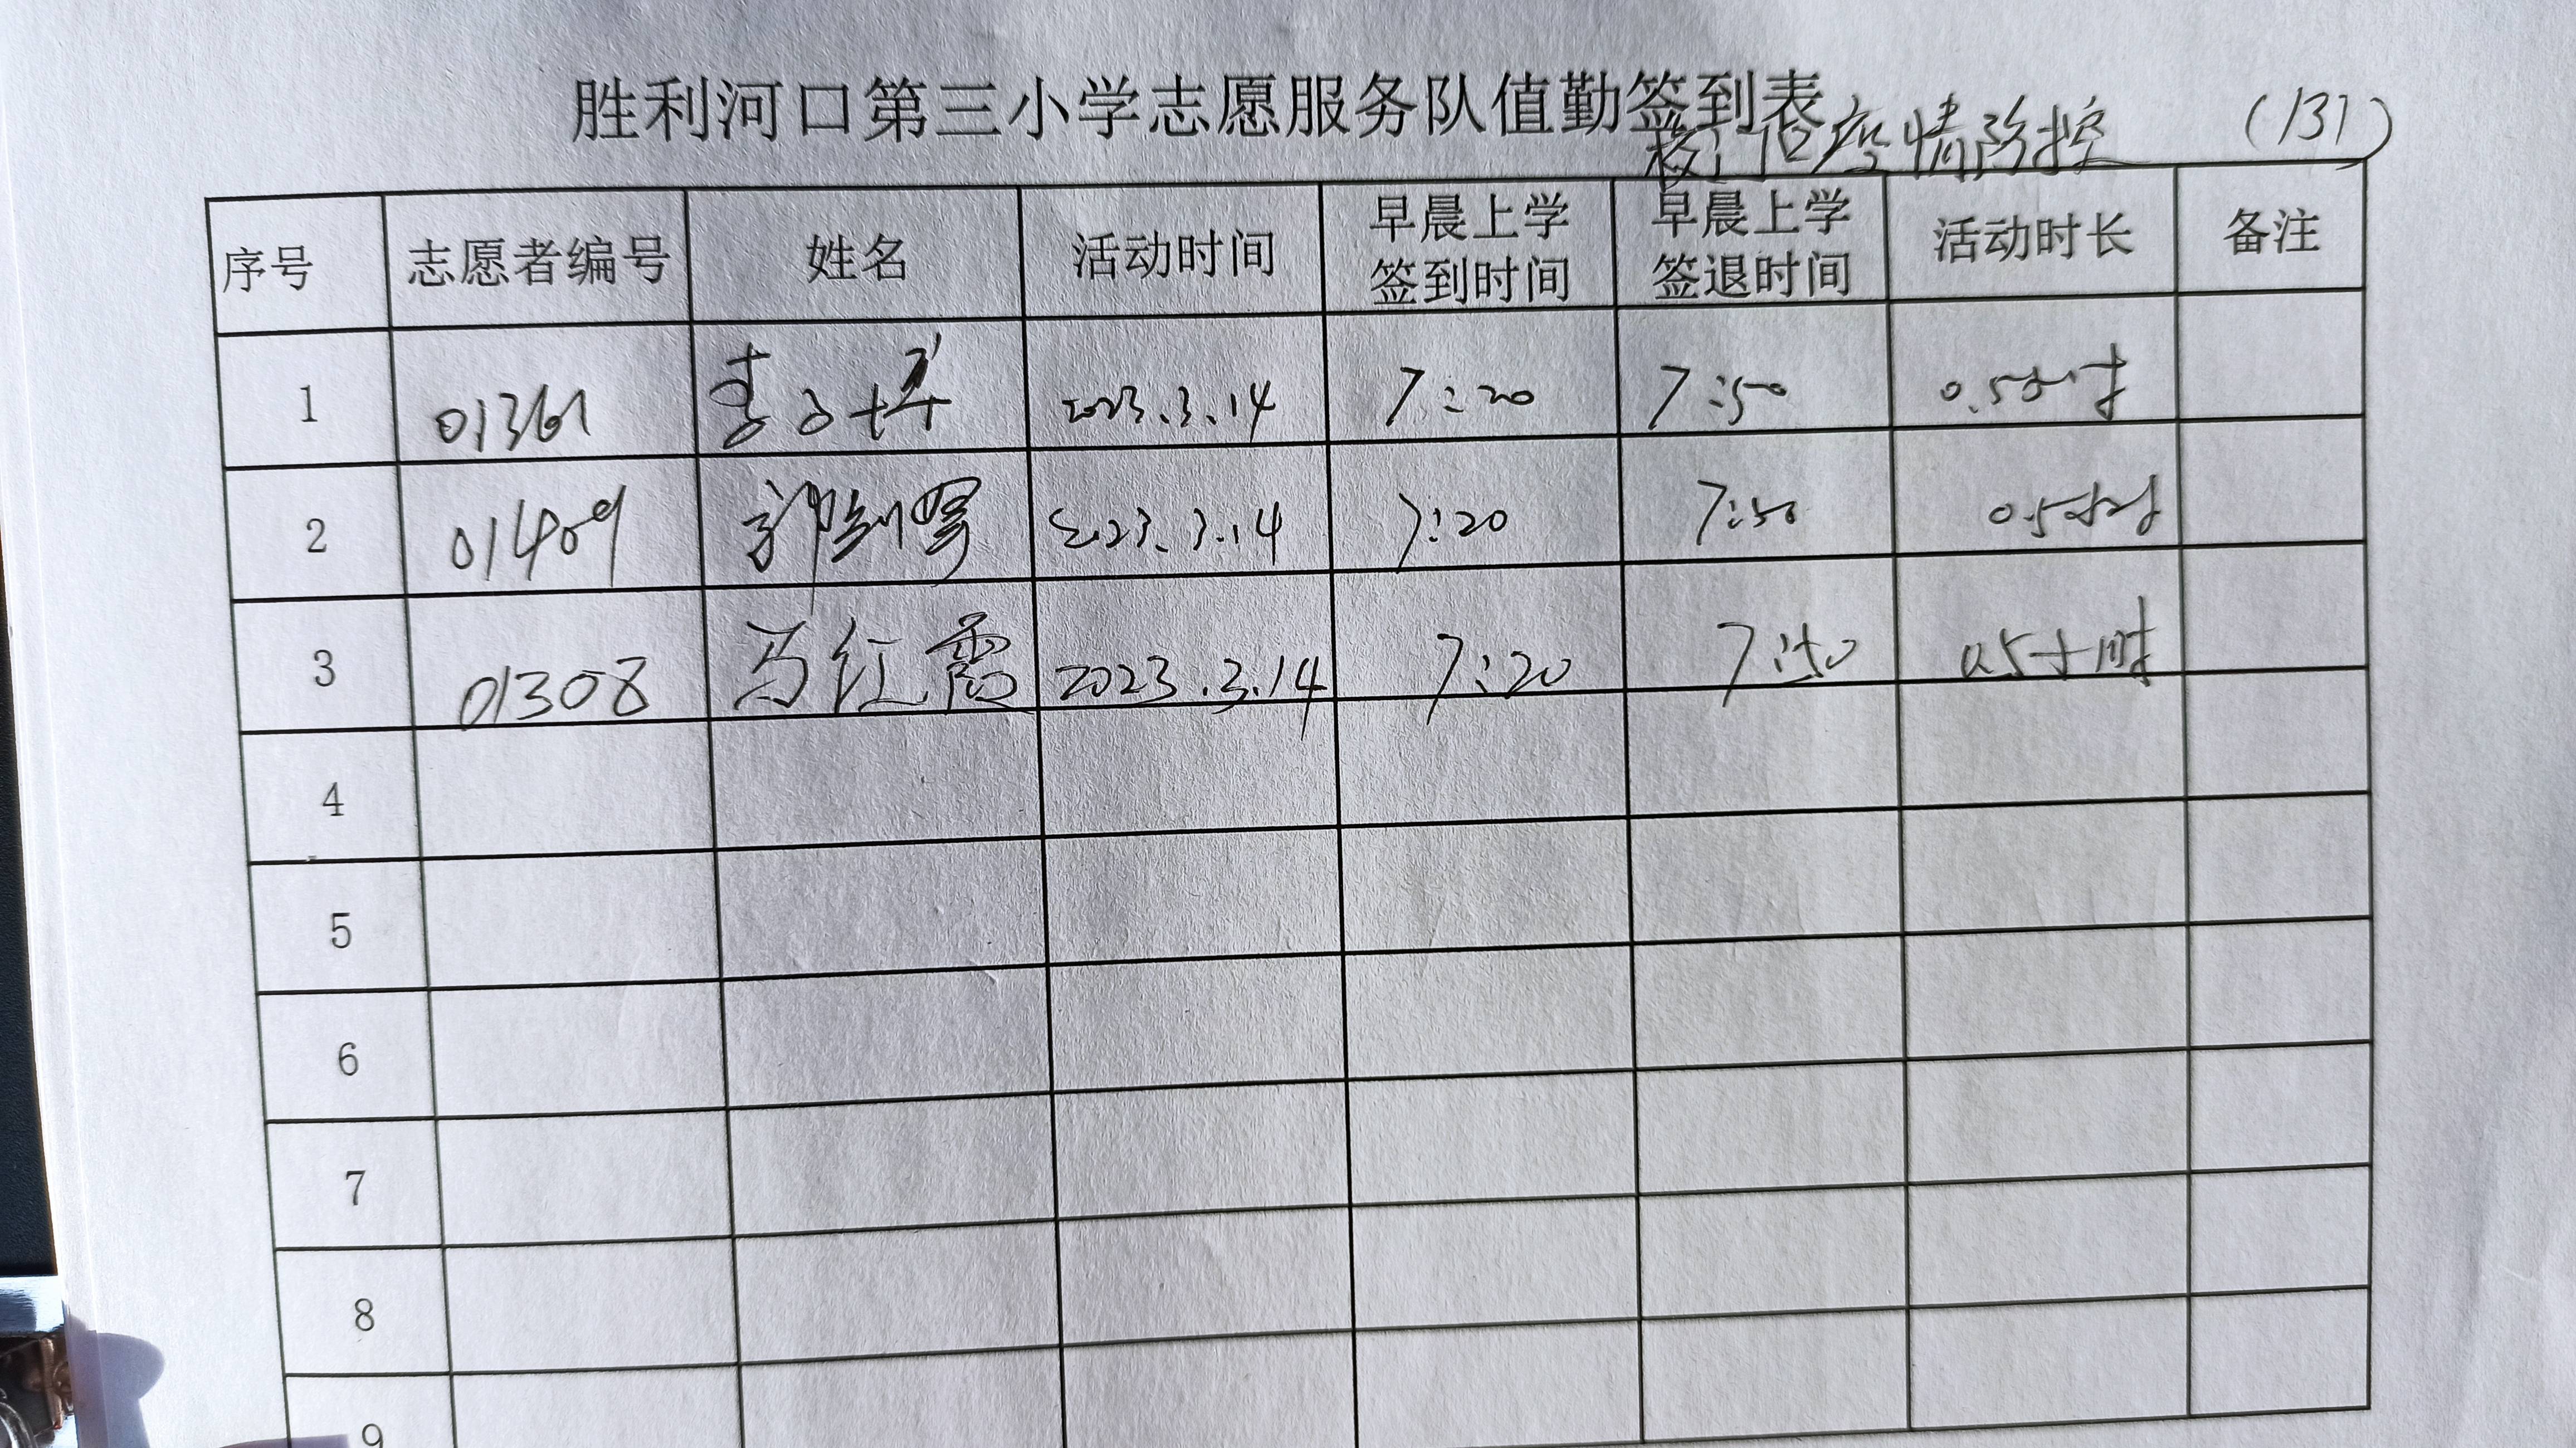 胜利河口第三小学志愿服务队值勤签到表
校门口疫情防控 (131)
序号 志愿者编号 姓名 活动时间 早晨上学签到时间 早晨上学签退时间 活动时长 备注
1 01361 2023.3.14 7:20 7:50 0.5小时
2 01409 2023.3.14 7:20 7:50 0.5小时
3 01308 马红霞 2023.3.14 7:20 7:50 0.5小时
4
5
6
7
8
9